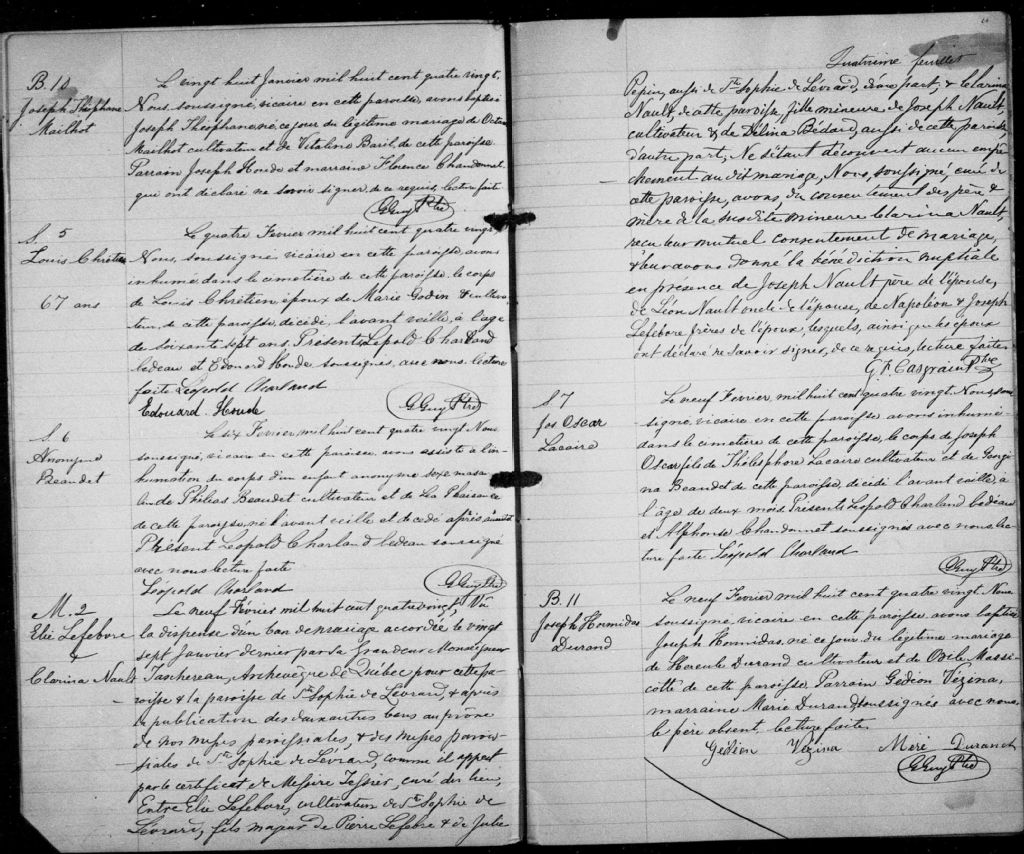 B. 10
Joseph Théophane
Mailhot
Le vingt huit Janvier mil huit cent quatre vingt,
Nous, soussigné, vicaire en cette paroisse, avons baptisé
Joseph Théophane, né ce jour du légitime mariage de Octave
Mailhot cultivateur et de Vitaline Baril de cette paroisse.
Parrain Joseph Houde et marraine Florence Chandonnet
qui ont déclaré ne savoir signer, de ce requis, lecture faite
GGuy Ptre
S. 5
Louis Chrétien
67 ans
Le quatre Fevrier mil huit cent quatre vingt,
Nous, soussigné vicaire en cette paroisse, avons
inhumé dans le cimetière de cette paroisse, le corps
de Louis Chrétien époux de Marie Godin & cultiva-
teur, de cette paroisse, décédé, l'avant veille, à l'age
de soixante sept ans. Présents Léopold Charland
bedeau et Edouard Houde soussignés, avec nous. lecture
faite Léopold Charland
Edouard Houde
GGuy Ptre
S. 6
Anonyme
Beaudet
Le six Fevrier mil huit cent quatre vingt Nous
soussigné, vicaire en cette paroisse, avons assisté à l'in-
humation du corps d'un enfant anonyme sexe mascu-
lin de Philias Beaudet cultivateur et de Plaisance
de cette paroisse, né l'avant veille et décédé après
Présent Léopold Charland bedeau soussigné
avec nous lecture faite
Léopold Charland
GGuy Ptre
M. 2
Elie Lefebvre
&
Clarina Nault
Le neuf Fevrier mil huit cent quatre vingt, Vu
la dispense d'un ban de mariage accordée le vingt
sept Janvier dernier par Sa Grandeur Monseigneur
Taschereau, Archevêque de Québec pour cette pa-
roisse & la paroisse de Ste Sophie de Lévrard, & après
la publication des deux autres bans au prône
de nos messes paroissiales, & des messes parois-
siales de Ste Sophie de Lévrard, comme il appert
par le certificat de Messire Tessier, curé du lieu,
Entre Elie Lefebvre, cultivateur de Ste Sophie de
Lévrard, fils majeur de Pierre Lefebvre & de Julie
Quatrième feuillet
Pepin, aussi de Ste Sophie de Lévrard, d'une part, & Clarina
Nault, de cette paroisse, fille mineure de Joseph Nault,
cultivateur & de Délina Bédard, aussi de cette paroisse
d'autre part; Ne s'étant découvert aucun empê-
chement au dit mariage, Nous, soussigné, curé de
cette paroisse, avons, du consentement des père &
mère de la susdite mineure Clarina Nault,
reçu leur mutuel consentement de mariage,
& leur avons donné la bénédiction nuptiale
en présence de Joseph Nault père de l'épouse,
de Léon Nault oncle de l'épouse, de Napoléon & Joseph
Lefebvre frères de l'époux, lesquels, ainsi que les époux
ont déclaré ne savoir signer, de ce requis, lecture faite.
G. F. Casgrain Ptre
S. 7
Jos Oscar
Lacaire
Le neuf Fevrier, mil huit cent quatre vingt Nous sous
signé, vicaire en cette paroisse avons inhumé
dans le cimetière de cette paroisse, le corps de Joseph
Oscar fils de Thélesphore Lacaire cultivateur et de Georgi-
na Beaudet de cette paroisse, décédé l'avant veille, à
l'âge de deux mois Présents Léopold Charland bedeau
et Alphonse Chandonnet soussignés avec nous lec-
ture faite Léopold Charland
GGuy Ptre
B. 11
Joseph Hormidas
Durand
Le neuf Fevrier mil huit cent quatre vingt, Nous
soussigné, vicaire en cette paroisse, avons baptisé
Joseph Hormidas, né ce jour du légitime mariage
de Hercule Durand cultivateur et de Odile Massi-
cotte de cette paroisse, Parrain Gédéon Vézina,
marraine Marie Durand soussignés avec nous
le père absent, lecture faite.
Gédéon Vézina Meré Durand
GGuy Ptre